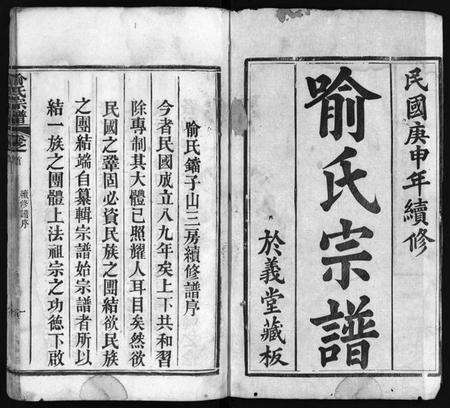 民國庚申年續修
喻氏宗譜
於義堂藏板
喻氏鏞子山三房續修譜序
今者民國成立八九年矣上下共和習
除專制其大體已照耀人耳目矣然欲
民國之鞏固必資民族之團結欲民族
之團結端自纂輯宗譜始宗譜者所以
結一族之團體上法祖宗之功德下啟
喻氏宗譜
卷首
續修譜序